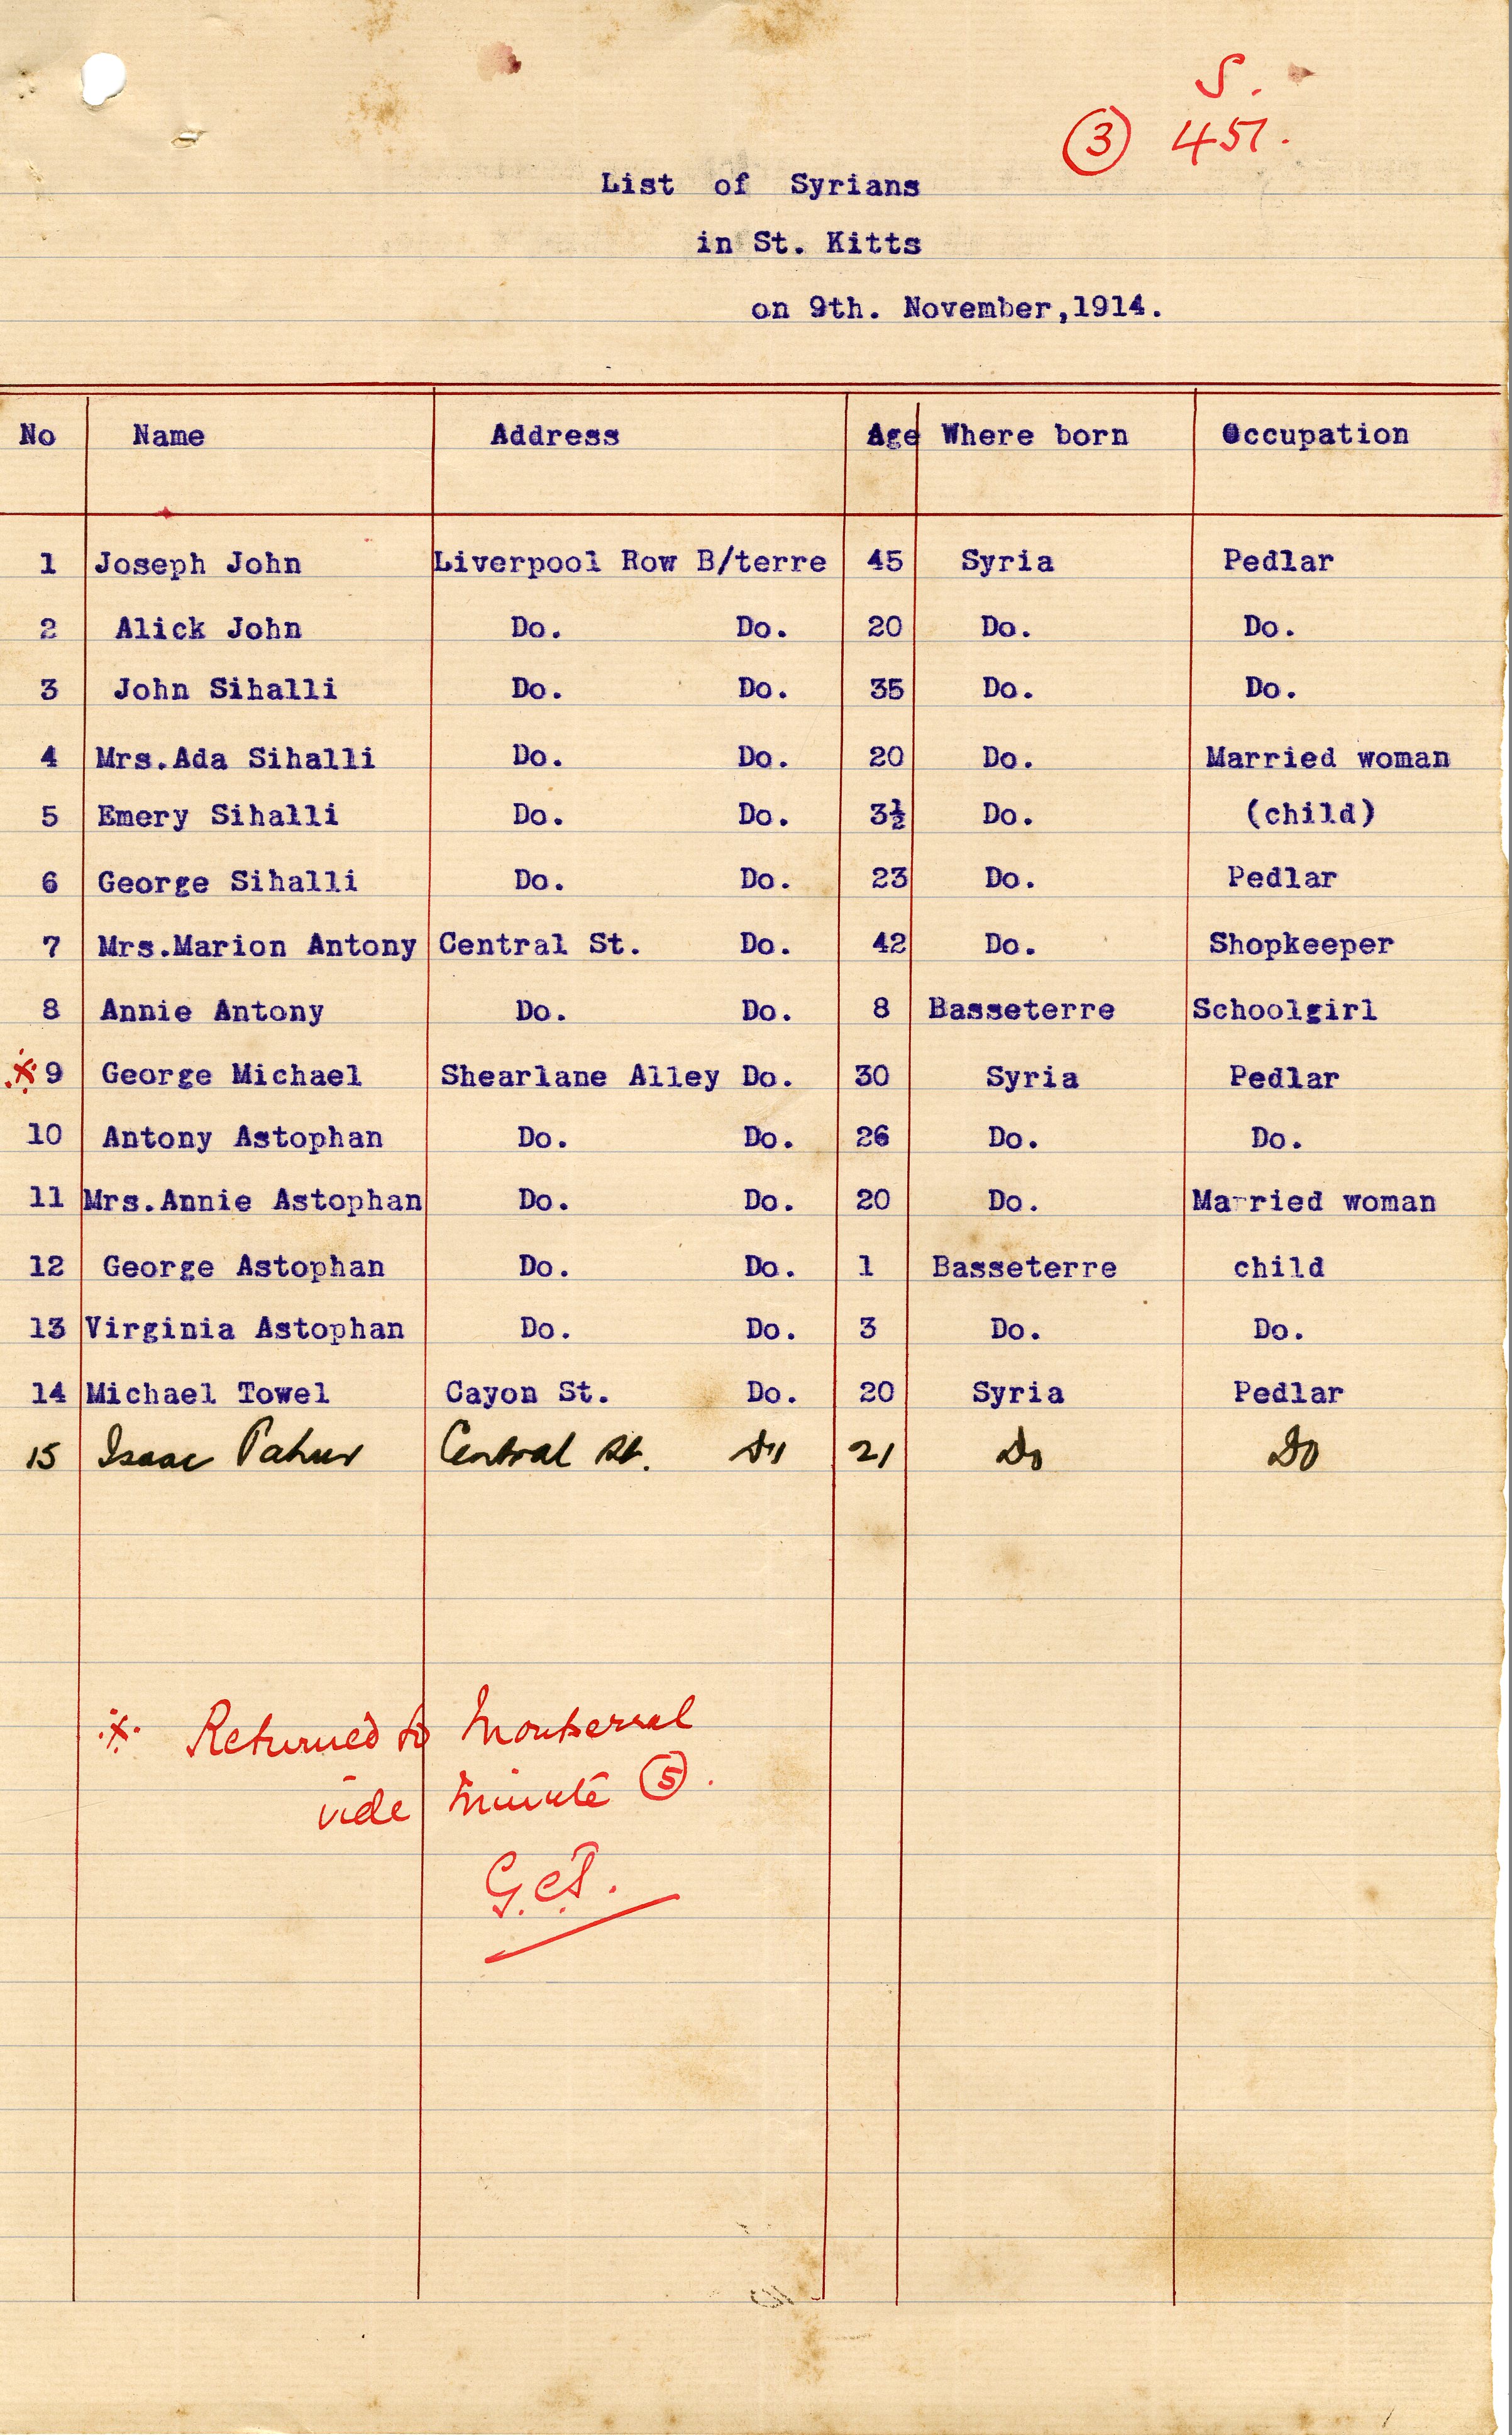 S.
③ 451.
List of Syrians
in St. Kitts
on 9th. November,1914.
No Name Address Age Where born Occupation
1 Joseph John Liverpool Row B/terre 45 Syria Pedlar
2 Alick John Do. Do. 20 Do. Do.
3 John Sihalli Do. Do. 35 Do. Do.
4 Mrs.Ada Sihalli Do. Do. 20 Do. Married woman
5 Emery Sihalli Do. Do. 3½ Do. (child)
6 George Sihalli Do. Do. 23 Do. Pedlar
7 Mrs.Marion Antony Central St. Do. 42 Do. Shopkeeper
8 Annie Antony Do. Do. 8 Basseterre Schoolgirl
※ 9 George Michael Shearlane Alley Do. 30 Syria Pedlar
10 Antony Astophan Do. Do. 26 Do. Do.
11 Mrs.Annie Astophan Do. Do. 20 Do. Married woman
12 George Astophan Do. Do. 1 Basseterre child
13 Virginia Astophan Do. Do. 3 Do. Do.
14 Michael Towel Cayon St. Do. 20 Syria Pedlar
15 Isaac Central St. Do 21 Do Do
※ Returned to Montserrat
vide minute ⑤.